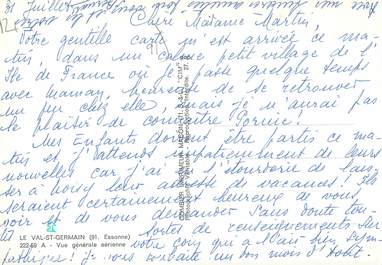 31 Juillet
Chère Madame Martin,
Votre gentille carte m'est arrivée ce ma-
tin, dans un calme petit village de l'
Ile de France où je passe quelque temps
avec maman, heureuse de se retrouver
un peu chez elle, mais je n'aurai pas
le plaisir de connaître Pornic!
Mes Enfants doivent être partis ce ma-
tin et j'attends impatiemment de leurs
nouvelles car j'ai eu l'étourderie de lais-
ser à Noisy leur adresse de vacances! Ils
seraient certainement heureux de vous
voir et de vous demander sans doute tou-
tes sortes de renseignements sur
votre coin qui a l'air bien sym-
pathique! Je vous souhaite un bon mois d'Août
LE VAL-ST-GERMAIN (91, Essonne)
222-69 A - Vue générale aérienne
COMBIER IMPRIMEUR MACON (S.-&-L.) "CIM"